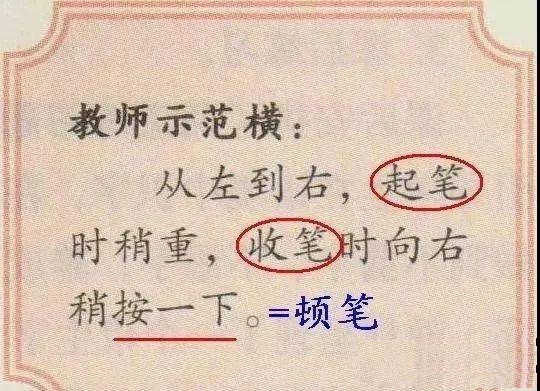 教师示范横：
从左到右，起笔
时稍重，收笔时向右
稍按一下。=顿笔